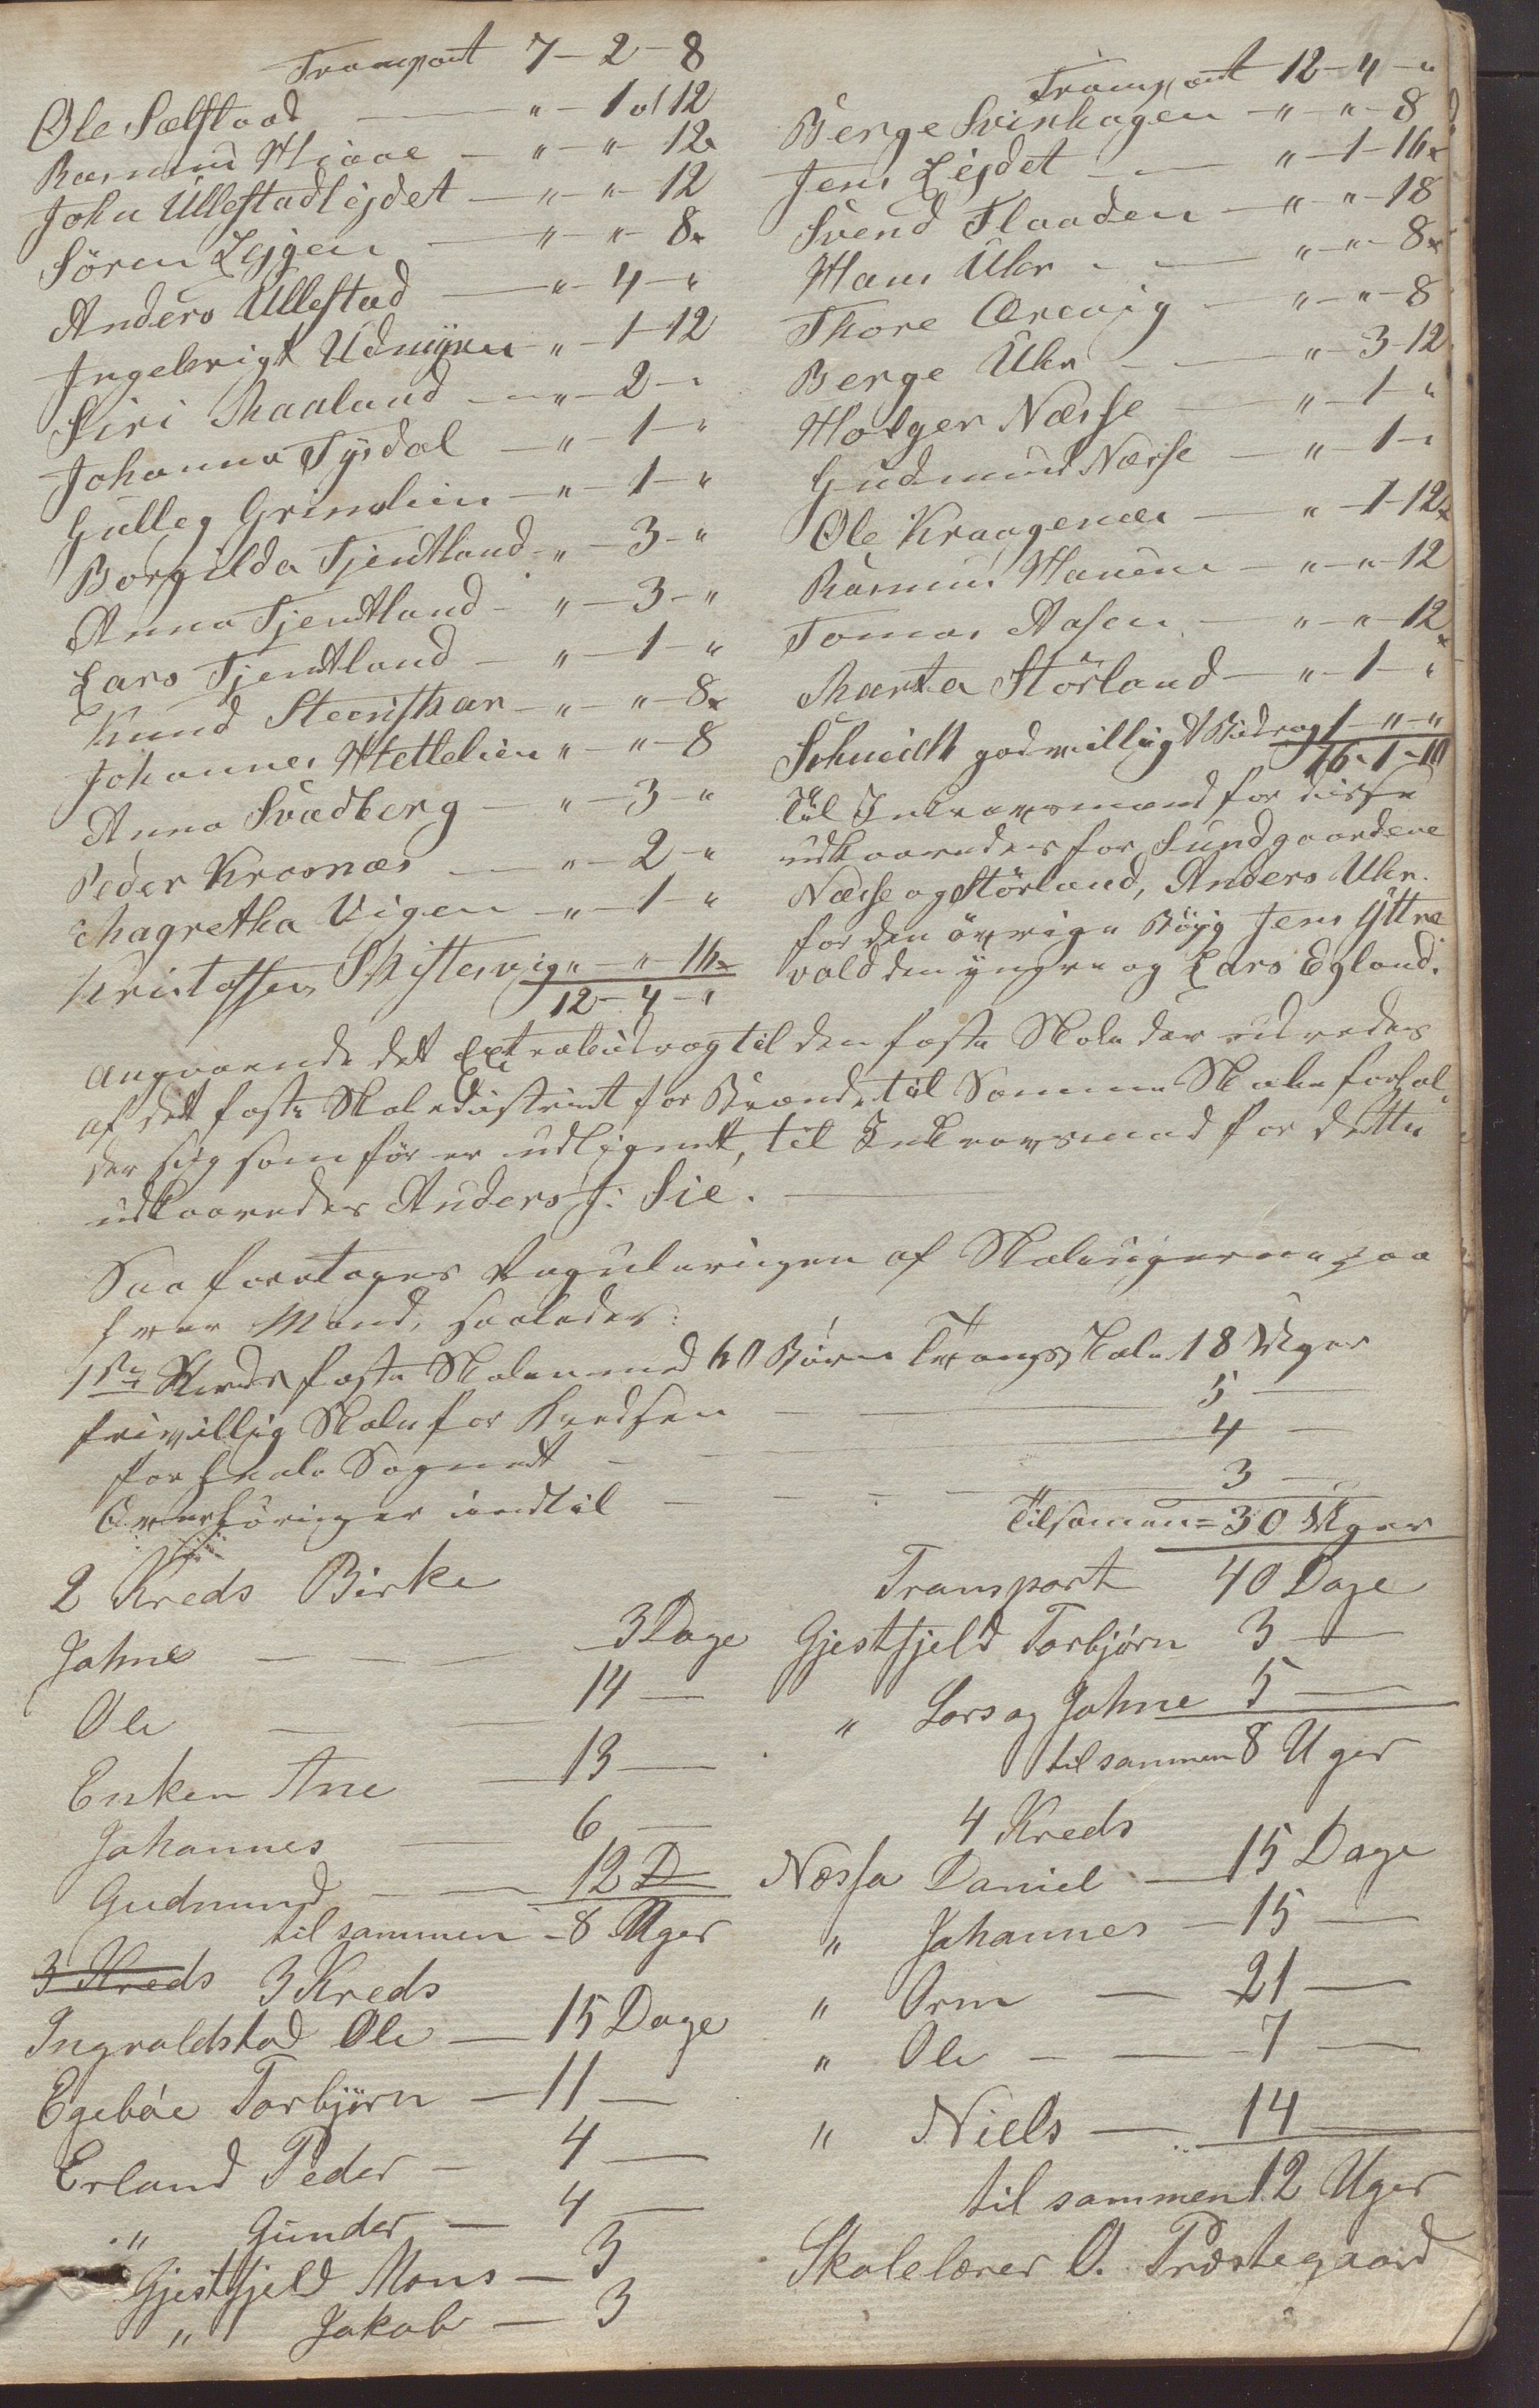 Transport 7 - 2 - 8
Ole Sælstad — " - 1 - 12
Rasmus Hiaae — " - " - 12
John Ullestadlejdet — " - " - 12
Sören Lejgen — " - " - 8
Anders Ullestad — " - 4 - "
Ingebrigt Udmyren — " - 1 - 12
Siri Maaland — " - 2 - "
Johanna Tysdal — " - 1 - "
Gulleg Grimslien — " - 1 - "
Borgilda Tjentland — " - 3 - "
Anna Tjentland — " - 3 - "
Lars Tjentland — " - 1 - "
Knud Steenskar — " - " - 8
Johannes Hettelien " - " - 8
Anna Svadberg — " - 3 - "
Peder Krosnæs — " - 2 - "
Magretha Vigen — " - 1 - "
Kristoffer Skiftesvig " - " - 16
12 - 4 - "
Transport 12 - 4 - "
Berge Svinhagen — " - " - 8
Jens Lejdet — " - 1 - 16
Svend Flaaden — " - " - 18
Hans Uhr — " - " - 8
Thore Orevig — " - " - 8
Berge Uhr — " - 3 - 12
Holger Næsse — " - 1 - "
Gudmund Næsse — " - 1 - "
Ole Kraagenæs — " - 1 - 12
Rasmus Hauene — " - " - 12
Tomas Aasen — " - " - 12
Marta Störland — " - 1 - "
Schmidt godvilligt Bidrag 1 - " - "
16 - 1 - 10
til Inkravsmænd for disse
udkaaredes for Sundgaardene
Næsse og Störland, Anders Uhr.
for den övrige Böyg Jens Yttre
vold den yngre og Lars Egland.
Angaaende det Extrabidrag til den faste Skole der udredes
af det faste Skoledistrict for Brænde til Samme Skole forhol-
der sig som för er udlignet, til Inkravsmand for dette
udkaaredes Anders J. Sie.
Saa foretages Reguleringen af Skoleugerne paa
hver Mand, saaledes:
1ste Kreds faste Skolen med 60 Börn Tvangsskole 18 Uger
frivillig Skole for Kredsen — 5 —
for hele Sognet — 4 —
Overhöringer indtil — 3 —
Tilsamen = 30 Uger
2 Kreds Birke
Johne — 3 Dage
Ole — 14 —
Enken Ane — 13 —
Johannes — 6 —
Gudmund — 12 D
til sammen - 8 Uger
3 Kreds 3 Kreds
Ingvaldstad Ole — 15 Dage
Egebøe Torbjörn — 11 —
Erland Peder — 4 —
" Gunder — 4 —
Gjestfjeld Mons — 3
" Jakob — 3
Transport 40 Dage
Gjestfjeld Torbjørn 3 —
" Lars og Johne 5 —
til sammen 8 Uger
4 Kreds
Næssa Daniel — 15 Dage
" Johannes — 15 —
" Orm — 21 —
" Ole — 7 —
" Niels — 14 —
til sammen 12 Uger
Skolelærer O. Præstegaard